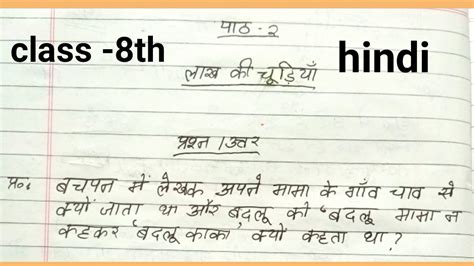 पाठ-२
class -8th
hindi
लाख की चूड़ियाँ
प्रश्न/उत्तर
प्र०: बचपन में लेखक अपने मामा के गाँव चाव से
क्यों जाता था और बदलू को 'बदलू मामा न
कहकर 'बदलू काका' क्यों कहता था?